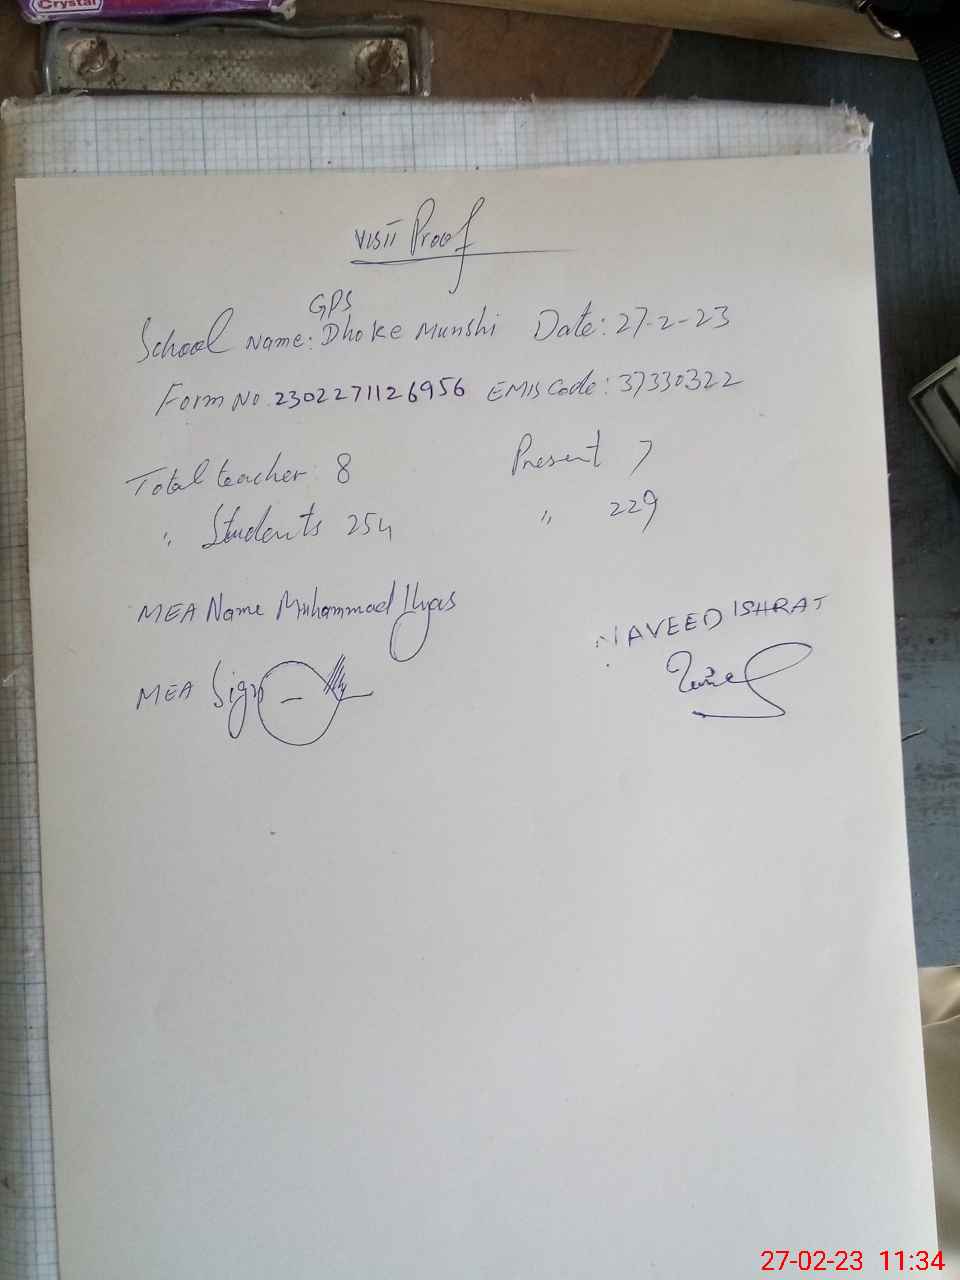 Crystal
VISIT Proof
GPS
School Name: Dhoke Munshi Date: 27-2-23
Form No. 2302271126956 EMIS Code: 37330322
Total teacher: 8 Present 7
" Students 254 " 229
MEA Name Muhammad Ilyas
NAVEED ISHRAT
MEA Sign
27-02-23 11:34